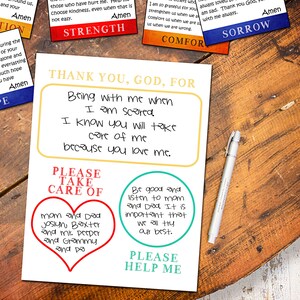 who have hurt me. Help me
choose kindness, even when that is
not easy.
Amen
STRENGTH
comfort us when we are
Amen
COMFORT
am sad. Thank you God, for
me always.
Amen
SORROW
Amen
THANK YOU, GOD, FOR
Being with me when
I am scared.
I know you will take
care of me
because you love me.
PLEASE
TAKE
CARE OF
mom and Dad
Joslyn, Baxter
and mr. Deeper
and Grammy
and Pa
Be good and
listen to mom
and Dad. It is
important that
we all try
our best.
PLEASE
HELP ME